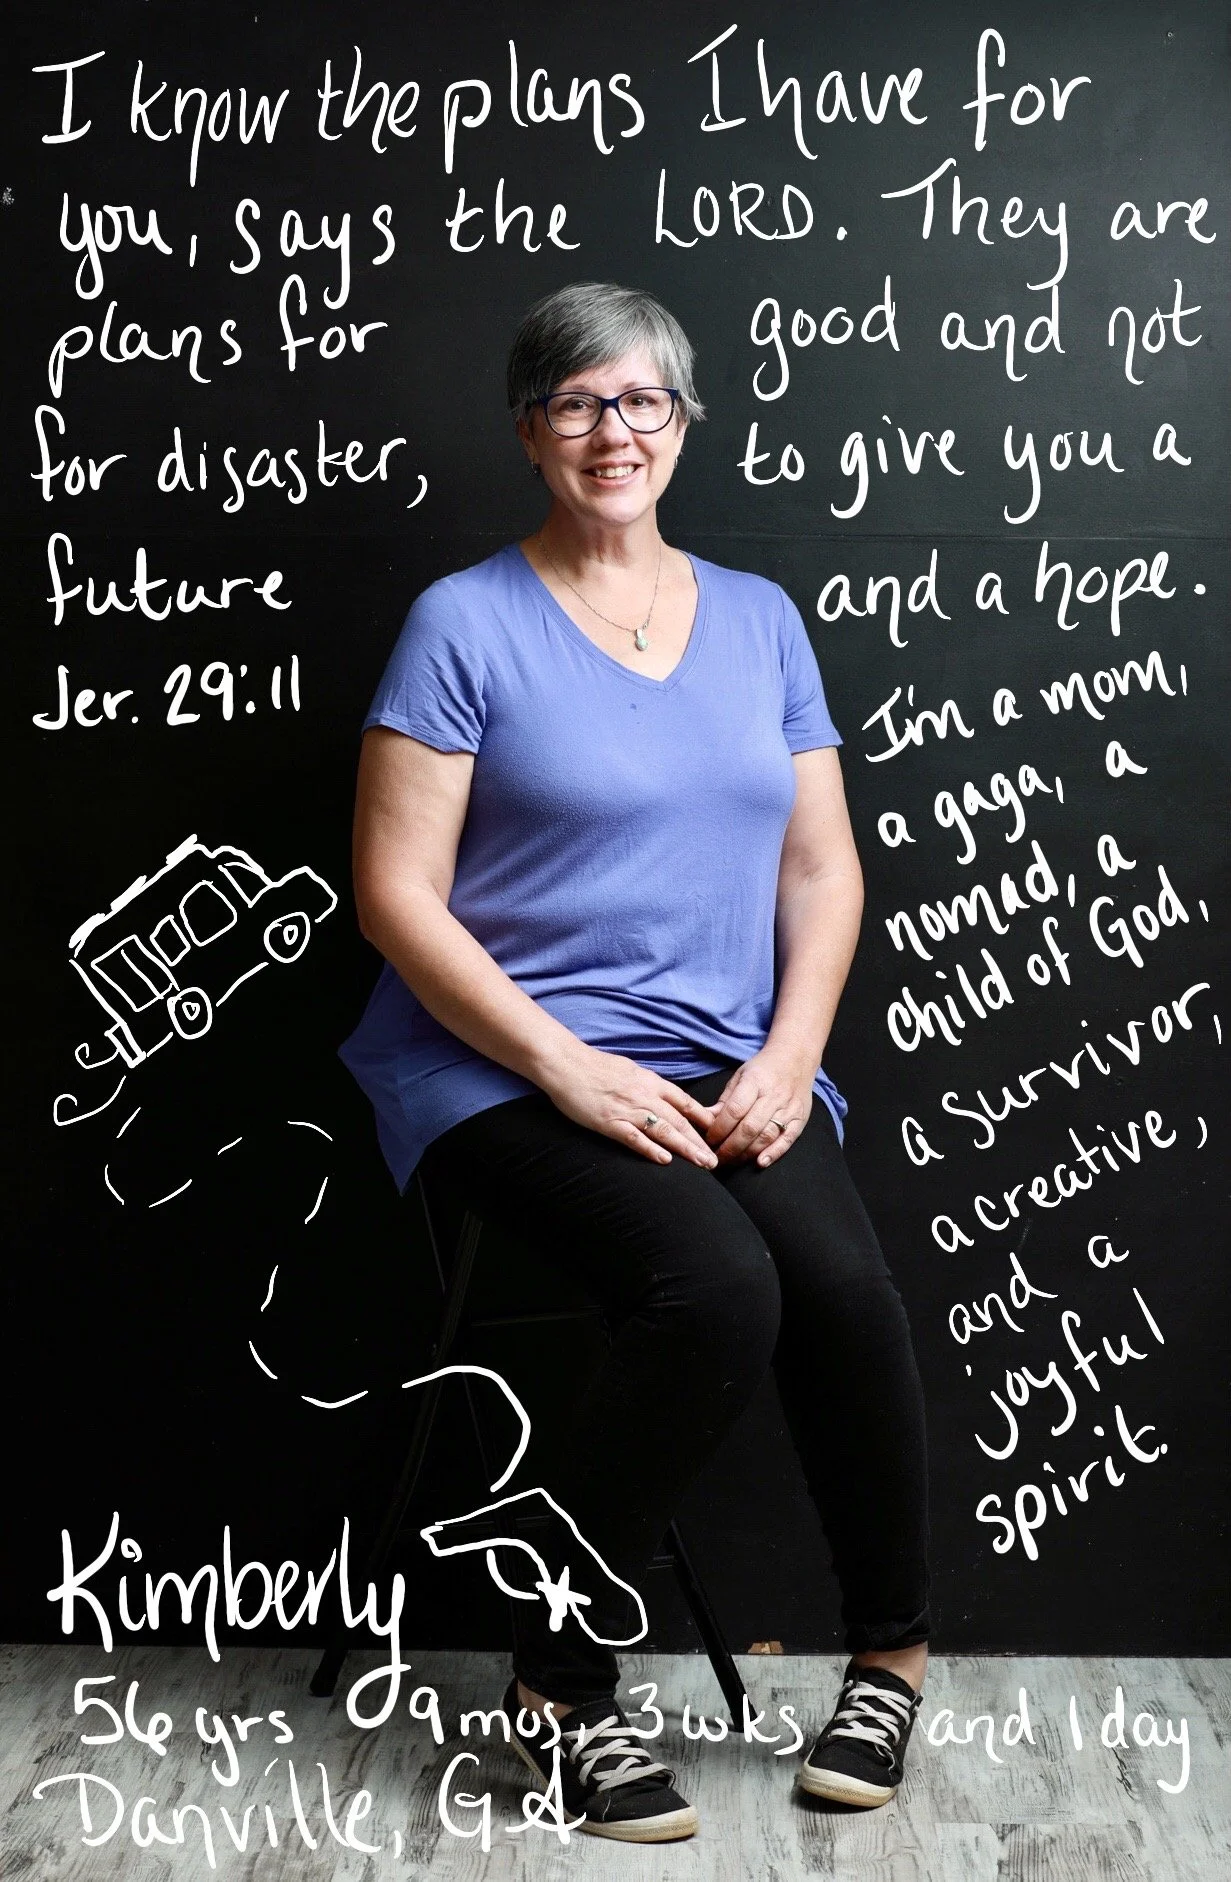 I know the plans I have for
you, says the LORD. They are
plans for good and not
for disaster, to give you a
future and a hope.
Jer. 29:11
I'm a mom,
a gaga, a
nomad, a
child of God,
a survivor,
a creative,
and a
joyful
spirit.
Kimberly
56 yrs 9 mos, 3 wks and 1 day
Danville, GA